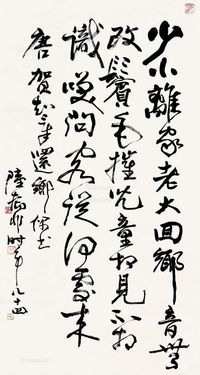 少小離家老大回鄉音無
改鬢毛摧兒童相見不相
識笑問客從何處來
唐賀知章還鄉偶書
陸儼少時年八十四